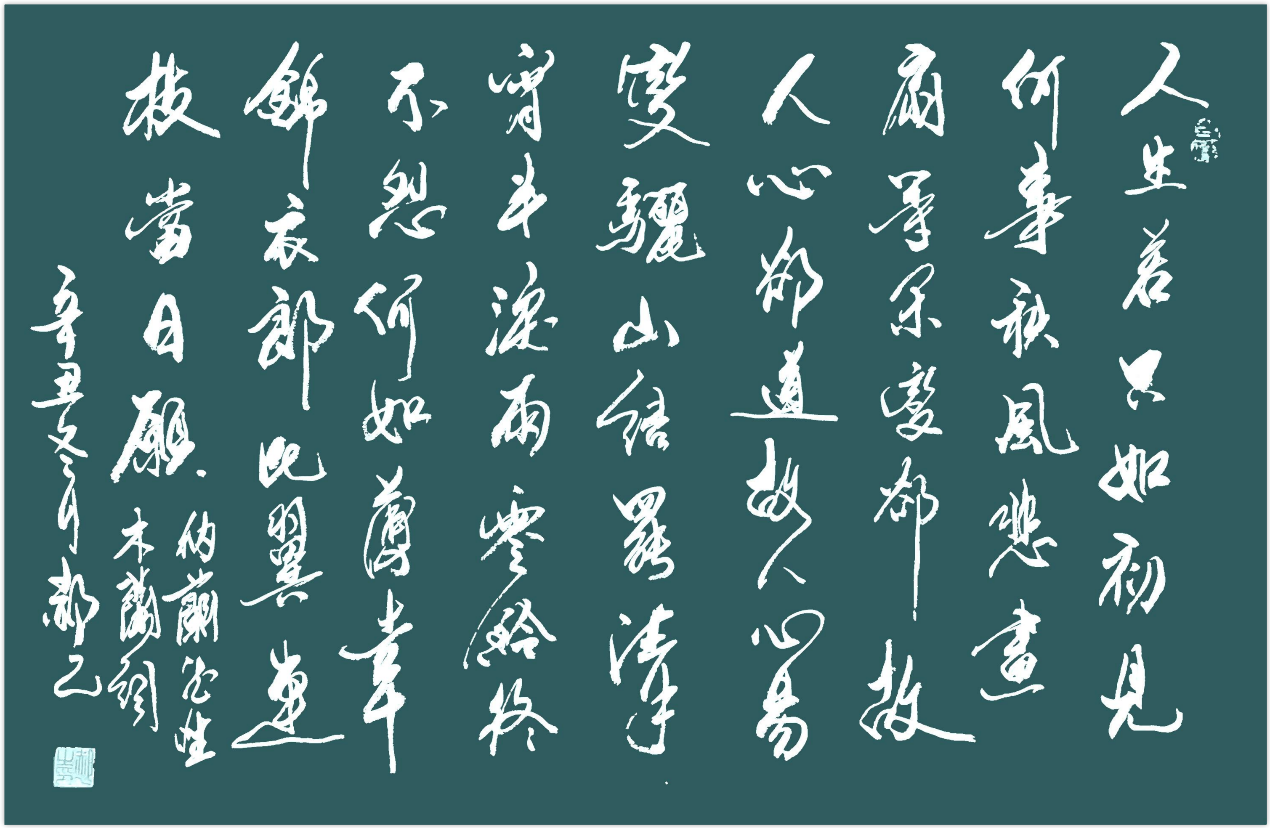 人生若只如初見
何事秋風悲畫
扇等閑變卻故
人心卻道故人心易
變驪山語罷清
宵半淚雨零鈴終
不怨何如薄幸
錦衣郎比翼連
枝當日願
納蘭性
木蘭詞
辛丑冬月郝